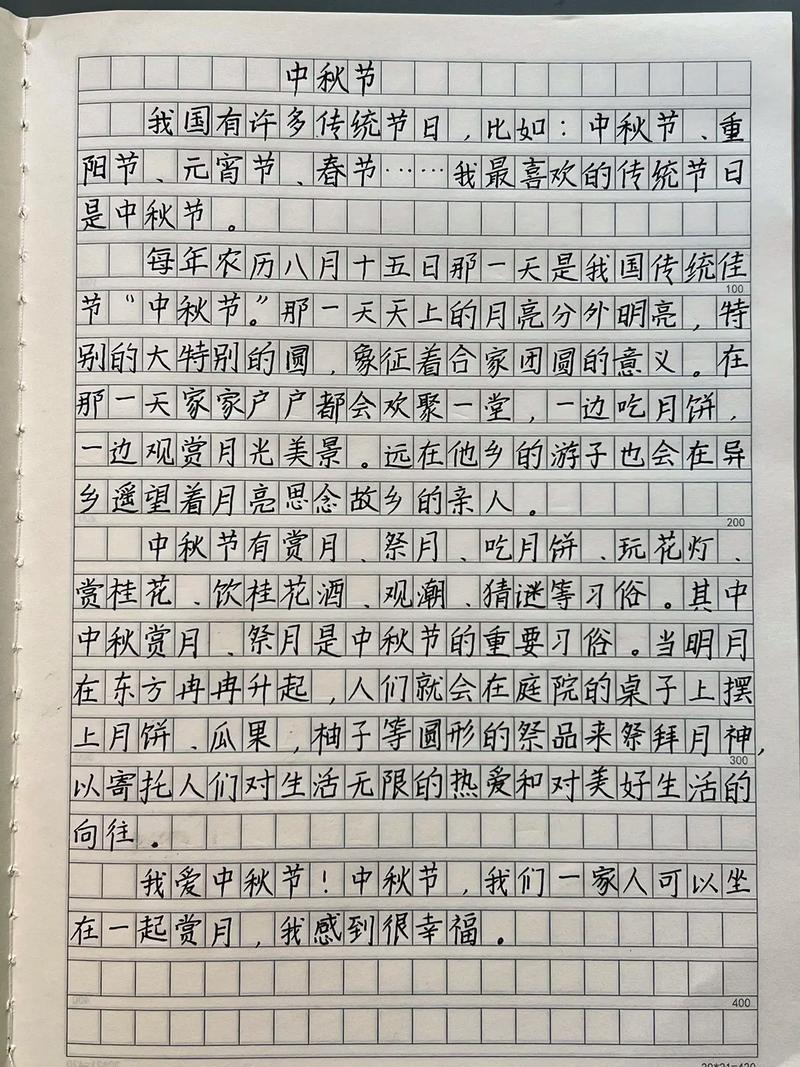 中秋节
我国有许多传统节日，比如：中秋节、重
阳节、元宵节、春节……我最喜欢的传统节日
是中秋节。
每年农历八月十五日那一天是我国传统佳
100
节“中秋节。”那一天天上的月亮分外明亮，特
别的大特别的圆，象征着合家团圆的意义。在
那一天家家户户都会欢聚一堂，一边吃月饼，
一边观赏月光美景。远在他乡的游子也会在异
乡遥望着月亮思念故乡的亲人。
200
中秋节有赏月、祭月、吃月饼、玩花灯、
赏桂花、饮桂花酒、观潮、猜谜等习俗。其中
中秋赏月、祭月是中秋节的重要习俗。当明月
在东方冉冉升起，人们就会在庭院的桌子上摆
上月饼、瓜果，柚子等圆形的祭品来祭拜月神，
300
以寄托人们对生活无限的热爱和对美好生活的
向往。
我爱中秋节！中秋节，我们一家人可以坐
在一起赏月，我感到很幸福。
400